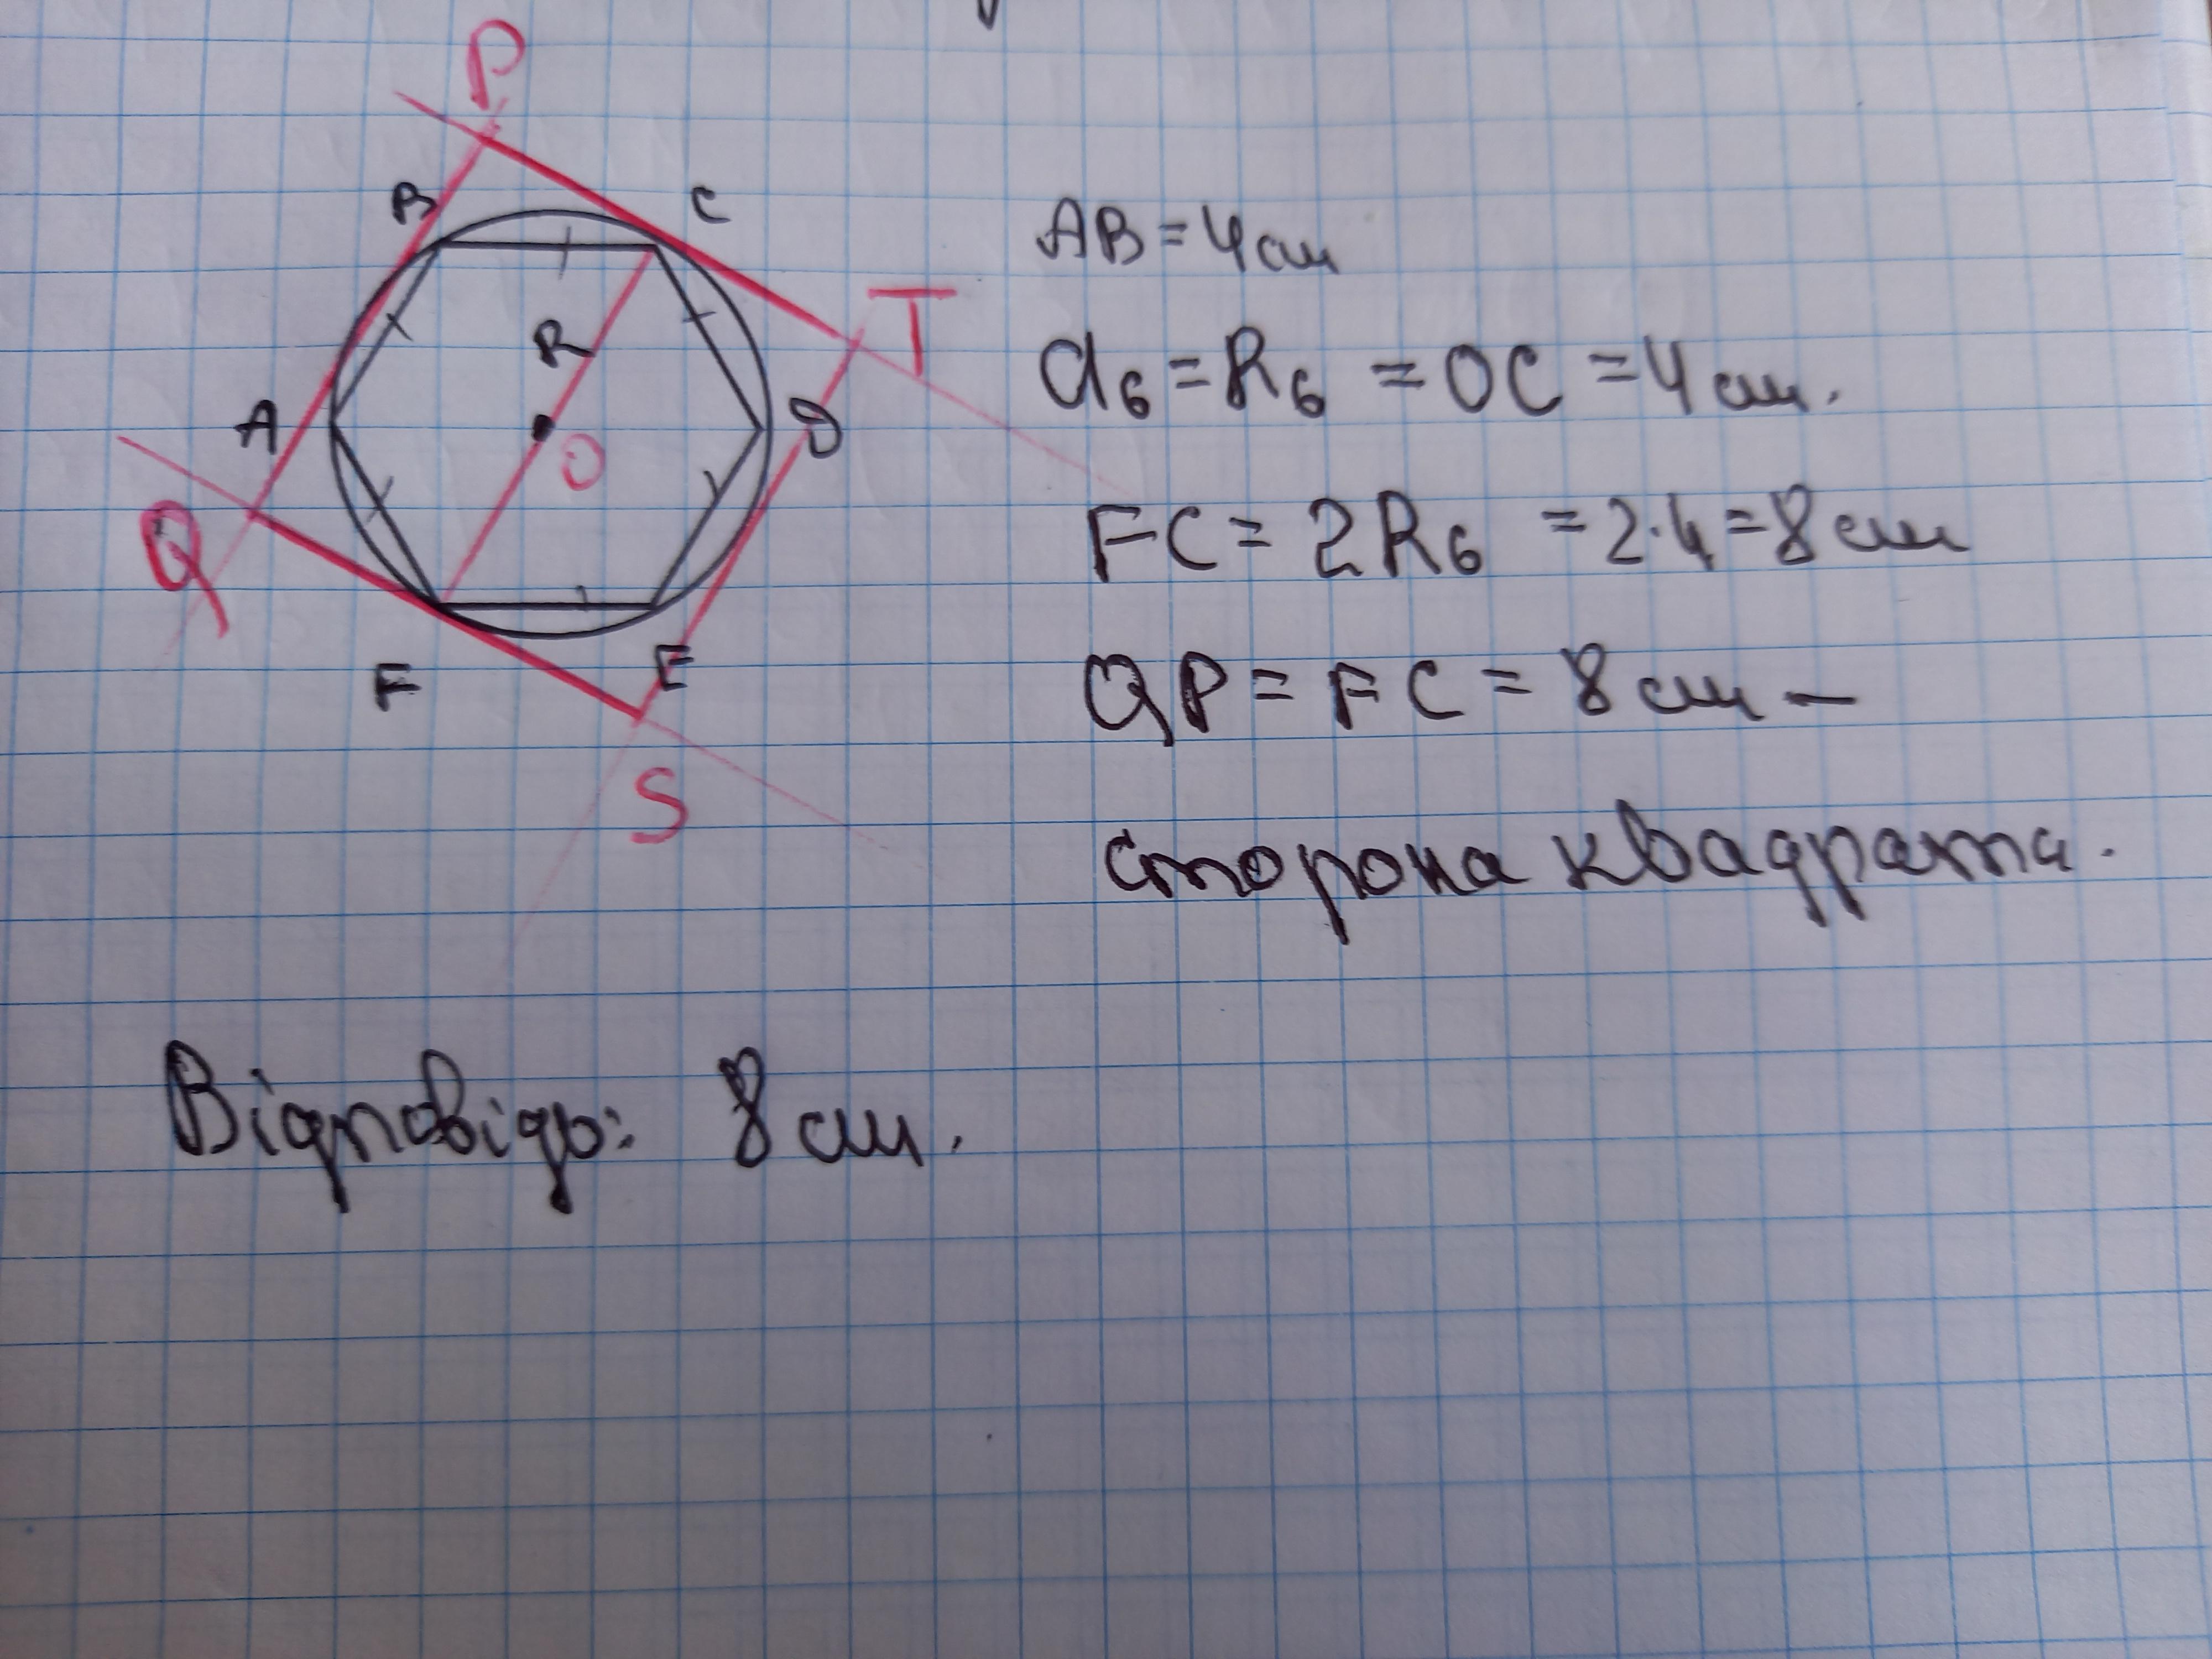 P
B
C
T
R
A
O
D
Q
F
E
S
AB = 4 см
a₆ = R₆ = OC = 4 см.
FC = 2R₆ = 2·4 = 8 см
QP = FC = 8 см –
сторона квадрата.
Відповідь: 8 см.